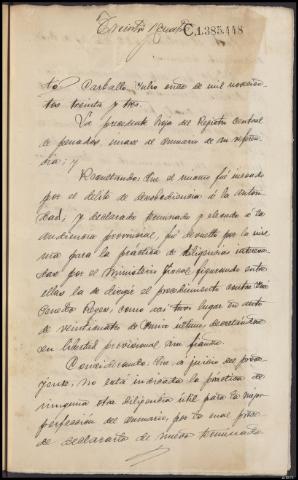 Treinta y cuatro C.1.385,448
to Carballo. Julio once de mil novecien-
tos treinta y tres.
La precedente hoja del Registro Central
de penados, únase al sumario de su referen-
cia; y
Resultando: Que el mismo fué incoado
por el delito de desobediencia á la autori-
dad; y declarado terminado y elevado á la
Audiencia provincial, fué devuelto por la mis-
ma para la práctica de diligencias interesa-
das por el Ministerio fiscal figurando entre
ellas la de dirigir el procedimiento contra José
Reyes, como así tuvo lugar en auto
de veinticuatro de Junio último, decretándose
en libertad provisional, sin fianza.
Considerando: Que, á juicio del prove-
yente, no está indicada la práctica de
ninguna otra diligencia útil para la mejor
perfección del sumario, por lo cual procede
de declararlo de nuevo terminado